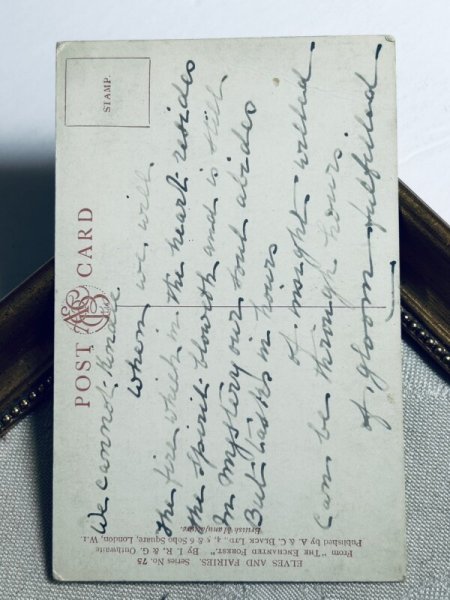 POST CARD
STAMP.
We cannot kindle
when we will
The fire which in the heart resides
the spirit bloweth and is still
In mystery our soul abides
But tasks in hours
of insight willed
Can be through hours
of gloom fulfilled
ELVES AND FAIRIES. Series No. 75
From "THE ENCHANTED FOREST." By I. R. & G. Outhwaite
Published by A. & C. BLACK, LTD., 4, 5 & 6 Soho Square, London, W.1
British Manufacture.